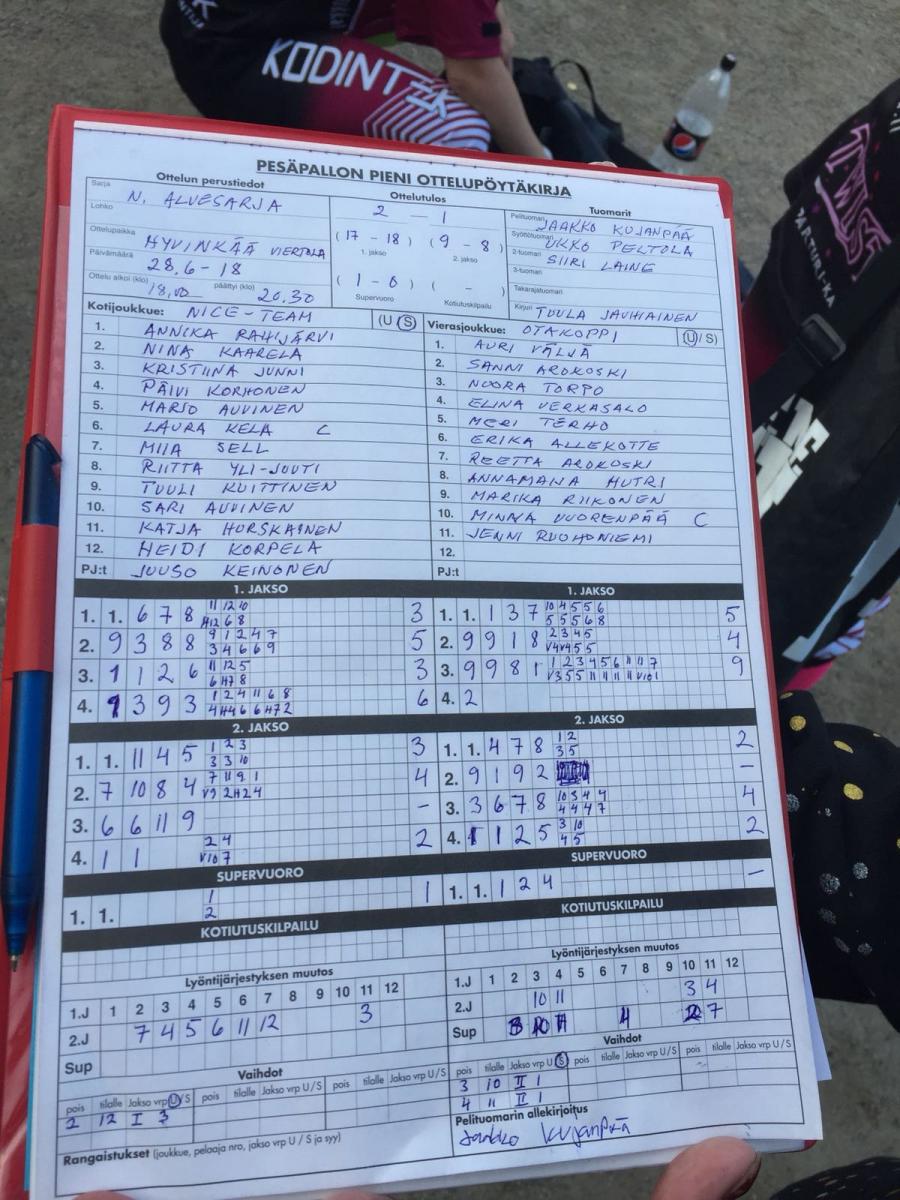 KODINT
TWIST
PARTURI-KA
PESÄPALLON PIENI OTTELUPÖYTÄKIRJA
Ottelun perustiedot
Sarja N. ALUESARJA
Lohko
Ottelupaikka HYVINKÄÄ VIERTOLA
Päivämäärä 28.6-18
Ottelu alkoi (klo) 18,00 päättyi (klo) 20.30
Ottelutulos
2 - 1
(17 - 18) (9 - 8)
1. jakso 2. jakso
(1 - 0) ( - )
Supervuoro Kotiutuskilpailu
Tuomarit
Pelituomari JAAKKO KUJANPÄÄ
Syöttötuomari UKKO PELTOLA
2-tuomari SIIRI LAINE
3-tuomari
Takarajatuomari
Kirjuri TUULA JAUHIAINEN
Kotijoukkue: NICE-TEAM (U/S)
1. ANNIKA RAHIJÄRVI
2. NINA KAARELA
3. KRISTIINA JUNNI
4. PÄIVI KORHONEN
5. MARJO AUVINEN
6. LAURA KELA C
7. MIIA SELL
8. RIITTA YLI-JOUTI
9. TUULI KUITTINEN
10. SARI AUVINEN
11. KATJA HURSKAINEN
12. HEIDI KORPELA
PJ:t JUUSO KEINONEN
Vierasjoukkue: OTAKOPPI (U/S)
1. AURI VÄLVÄ
2. SANNI AROKOSKI
3. NOORA TORPO
4. ELINA VERKASALO
5. MERI TERHO
6. ERIKA ALLEKOTTE
7. REETTA AROKOSKI
8. ANNAMAIJA HUTRI
9. MARIKA RIIKONEN
10. MINNA VUORENPÄÄ C
11. JENNI RUOHONIEMI
12.
PJ:t
1. JAKSO
1. 1. 6 7 8 11 12 10 3
6 8
2. 9 3 8 8 9 1 2 4 7 5
3 4 6 6 9
3. 1 1 2 6 11 12 5 3
4. 9 3 9 3 1 2 4 11 6 8 6
2. JAKSO
1. 1. 11 4 5 1 2 3 3
3 3 10
2. 7 10 8 4 7 11 9 1 4
3. 6 6 11 9 -
4. 1 1 2 4 2
V10 7
SUPERVUORO
1. 1. 1 1
2
KOTIUTUSKILPAILU
1. JAKSO
1. 1. 1 3 7 10 4 5 5 6 5
5 5 5 6 8
2. 9 9 1 8 2 3 4 5 4
3. 9 9 8 1 1 2 3 4 5 6 11 11 7 9
4. 2
2. JAKSO
1. 1. 4 7 8 1 2 2
3 5
2. 9 1 9 2 -
3. 3 6 7 8 10 3 4 4 4
4 4 4 7
4. 1 1 2 5 3 10 2
4 5
SUPERVUORO
1. 1. 1 2 4 -
KOTIUTUSKILPAILU
Lyöntijärjestyksen muutos
1 2 3 4 5 6 7 8 9 10 11 12
1.J 3
2.J 7 4 5 6 11 12
Sup
Vaihdot
pois tilalle Jakso vrp U/S pois tilalle Jakso vrp U/S pois tilalle Jakso vrp U/S
2 12 I 3
Rangaistukset (joukkue, pelaaja nro, jakso vrp U / S ja syy)
Lyöntijärjestyksen muutos
1.J 1 2 3 4 5 6 7 8 9 10 11 12
2.J 10 11 3 4
Sup 7
Vaihdot
pois tilalle Jakso vrp U S pois tilalle Jakso vrp U/S pois tilalle Jakso vrp U/S
3 10 II 1
4 11 II 1
Pelituomarin allekirjoitus
Jaakko Kujanpää